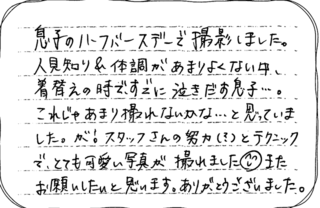 息子のハーフバースデーで撮影しました。
人見知り&体調があまりよくない中、
着替えの時ですでに泣きだす息子…。
これじゃあまり撮れないかな…と思っていま
した。が!スタッフさんの努力(ミ)とテクニック
で、とても可愛い写真が撮れました また
お願いしたいと思います。ありがとうございました。